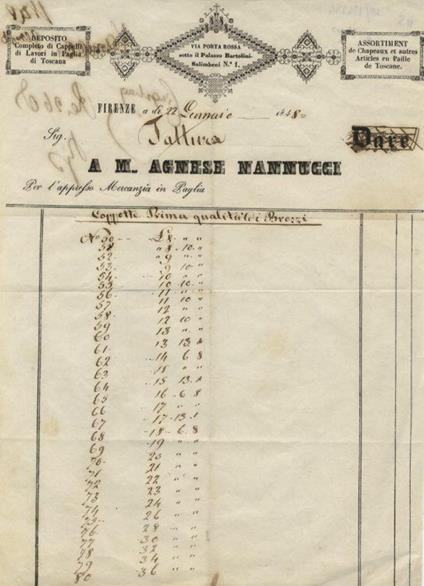 DEPOSITO
Completo di Cappelli
di Lavori in Paglia
di Toscana
VIA PORTA ROSSA
sotto il Palazzo Bartolini-
Salimbeni N.° 1.
ASSORTIMENT
de Chapeaux et autres
Articles en Paille
de Toscane.
FIRENZE a di 22 Gennaio 184
Sig. Fattura
Dare
A M. AGNESE NANNUCCI
Per l'appresso Mercanzia in Paglia
Coppette Prima qualità di Brozzi
N.° 50 " "
" 8 10 "
52 " 9 " "
53 9 10 "
54 10 " "
55 10 10 "
56 11 " "
57 11 10 "
58 12 " "
59 12 10 "
60 13 " "
61 13 13 4
62 14 6 8
63 15 " "
64 15 13 4
65 16 6 8
66 17 " "
67 17 13 4
68 18 6 8
69 19 " "
70 20 " "
71 21 " "
72 22 " "
73 23 " "
74 24 " "
75 26 " "
76 28 " "
77 30 " "
78 32 " "
79 34 " "
80 36 " "